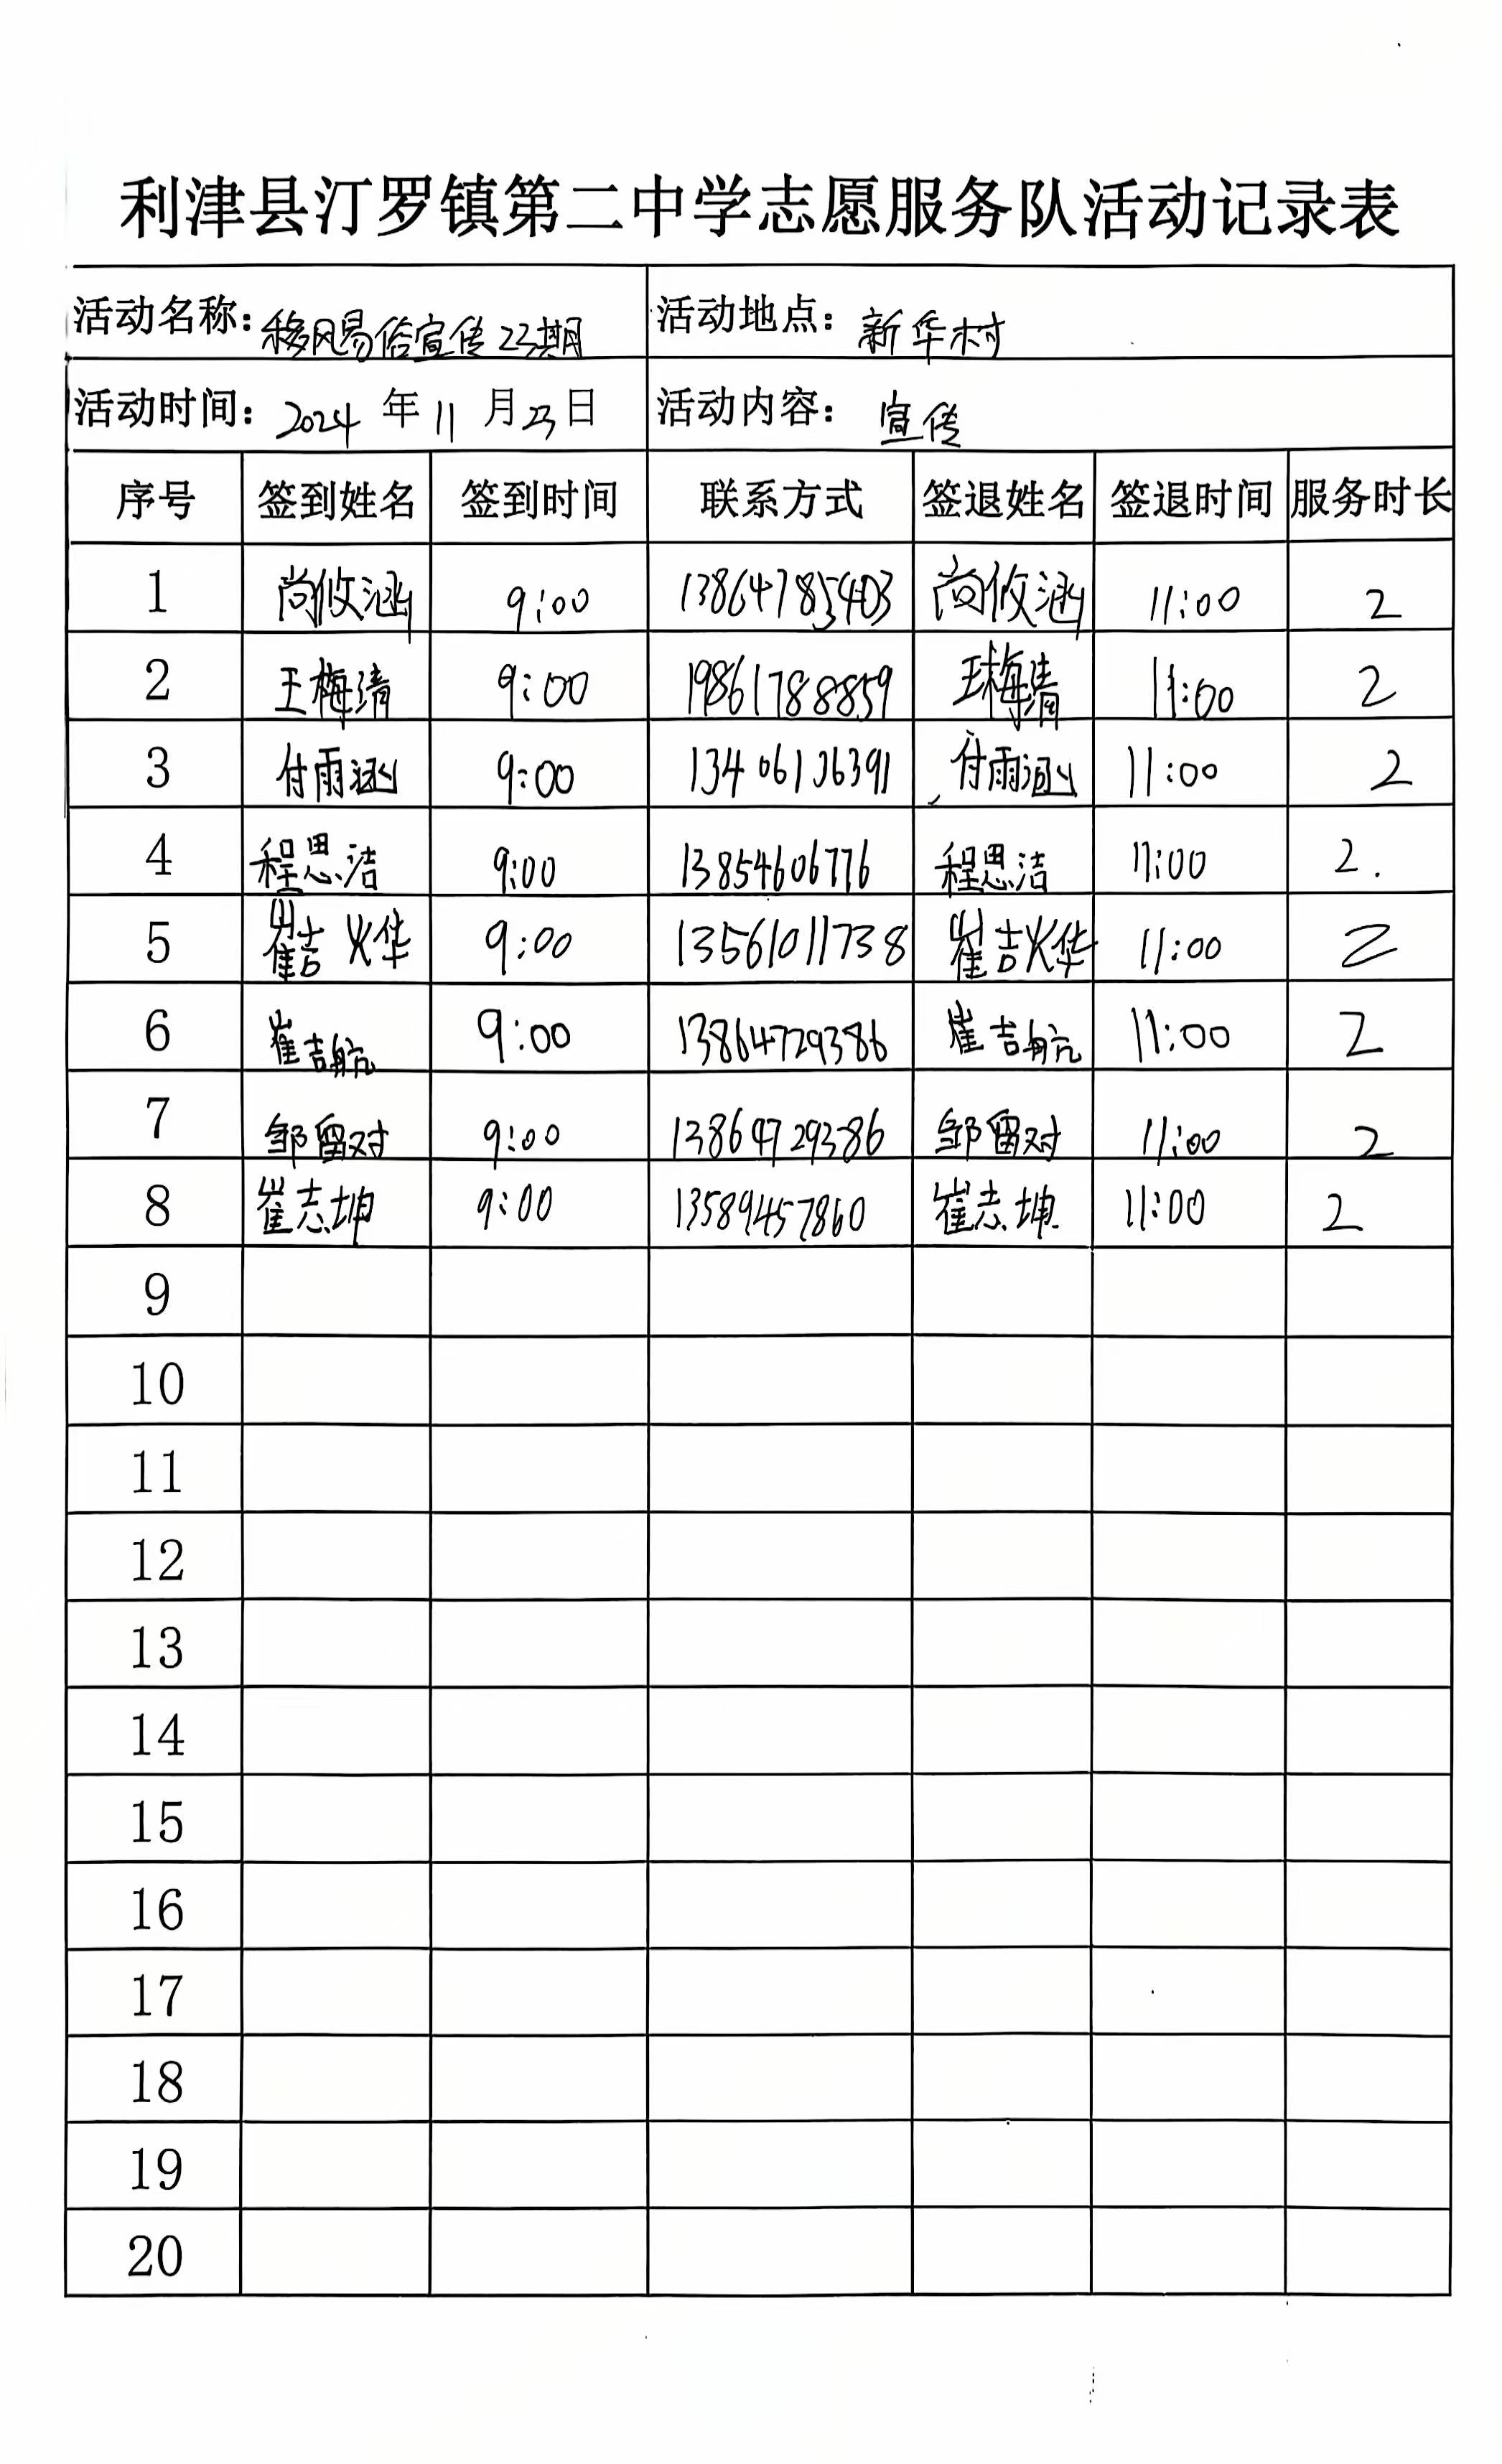 利津县汀罗镇第二中学志愿服务队活动记录表
活动名称：移风易俗宣传23期 活动地点：新华村
活动时间：2024 年 11 月 23 日 活动内容：宣传
序号 签到姓名 签到时间 联系方式 签退姓名 签退时间 服务时长
1 尚攸涵 9:00 13864785403 尚攸涵 11:00 2
2 王梅清 9:00 19861788859 王梅清 11:00 2
3 付雨涵 9:00 13406136391 付雨涵 11:00 2
4 程思洁 9:00 13854606776 程思洁 11:00 2.
5 崔吉烨 9:00 13561011738 崔吉烨 11:00 2
6 崔吉航 9:00 13864729386 崔吉航 11:00 2
7 邹留对 9:00 13864729386 邹留对 11:00 2
8 崔志坤 9:00 13589457860 崔志坤 11:00 2
9
10
11
12
13
14
15
16
17
18
19
20